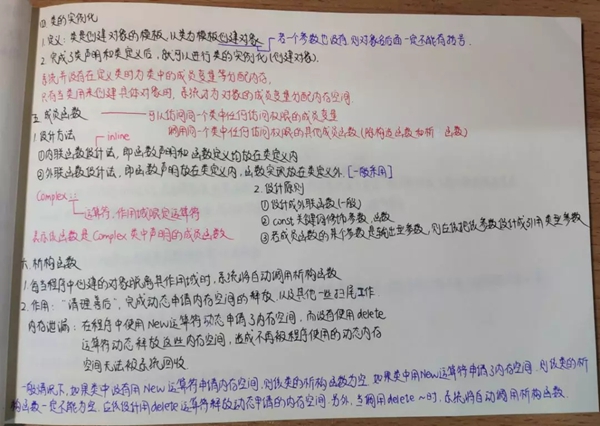 ② 类的实例化
1. 定义：类是创建对象的模板，以类为模板创建对象 → 若一个参数也没有，则对象名后面一定不能有括号。
2. 完成了类声明和类定义后，就可以进行类的实例化(创建对象)。
系统并没有在定义类时为类中的成员变量等分配内存，
只有当类用来创建具体对象时，系统才为对象的成员变量分配内存空间.
五. 成员函数 → 可以访问同一个类中任何访问权限的成员变量
调用同一个类中任何访问权限的其他成员函数(除构造函数和析 函数)
1. 设计方法 inline
①内联函数设计法，即函数声明和函数定义均放在类定义内
②外联函数设计法，即函数声明放在类定义内，函数实现放在类定义外. [一般采用]
Complex ::
→ 运算符，作用域限定运算符
表示该函数是Complex类中声明的成员函数
2. 设计原则
① 设计成外联函数(一般)
② const关键词修饰参数、函数
③ 若成员函数的某个参数是输出型参数，则应该把该参数设计成引用类型参数
六. 析构函数
1. 每当程序中创建的对象脱离其作用域时，系统将自动调用析构函数
2. 作用：“清理善后”，完成动态申请内存空间的释放，以及其他一些扫尾工作.
内存泄漏：在程序中使用New运算符动态申请了内存空间，而没有使用delete
运算符动态释放这些内存空间，造成不再被程序使用的动态内存
空间无法被系统回收
一般情况下，如果类中没有用New运算符申请内存空间，则该类的析构函数为空. 如果类中用New运算符申请了内存空间，则该类的析
构函数一定不能为空，应该设计用delete运算符释放动态申请的内存空间. 另外，当调用delete～时，系统将自动调用析构函数.